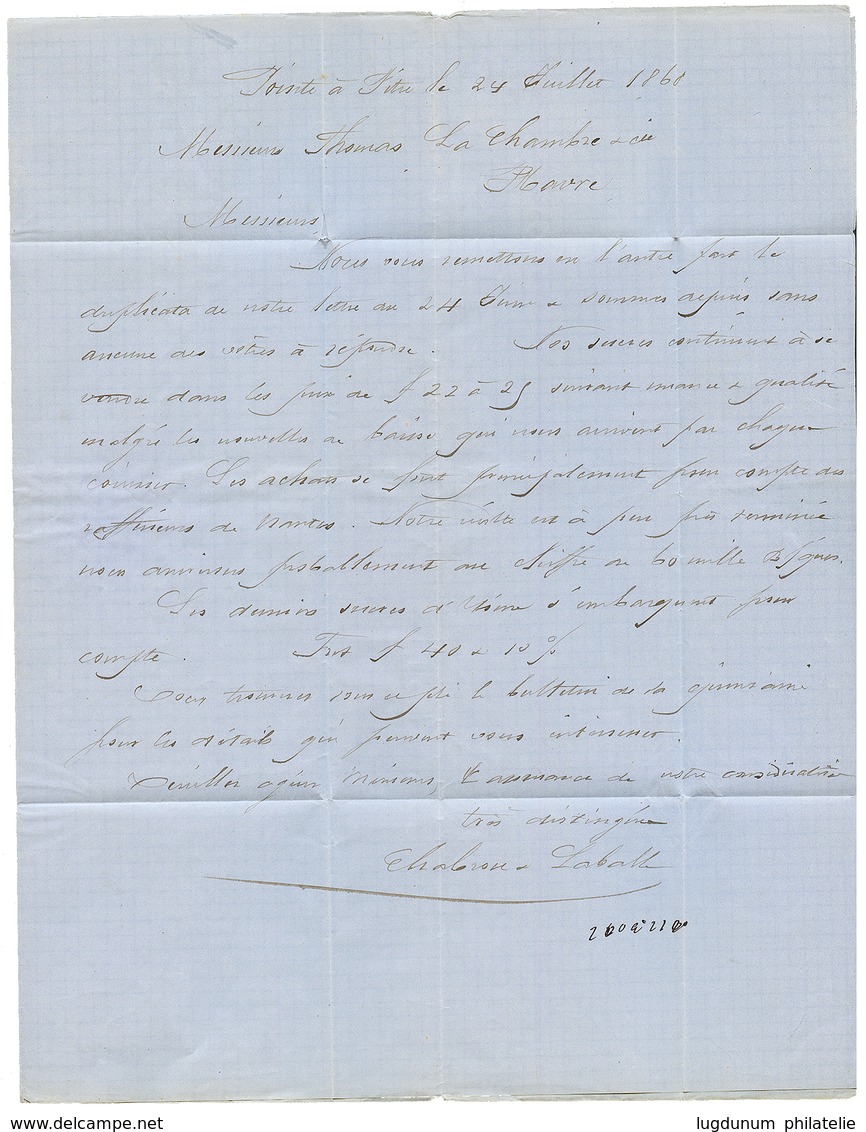 Pointe à Pitre le 24 Juillet 1860
Messieurs Thomas La Chambre & cie
Havre
Messieurs
Nous vous remettons en l'autre part le
duplicata de notre lettre du 24 Juin & sommes depuis sans
aucune des vôtres à répondre. Nos sucres continuent à se
vendre dans les prix de f 22 à 25 suivant nuance & qualité
malgré les nouvelles de baisse qui nous arrivent par chaque
courrier. Les achats se font principalement pour compte des
raffineurs de Nantes. Notre récolte est à peu près terminée
nous arriverons probablement au chiffre de 60 mille Bques.
Les derniers sucres d'Usine s'embarquent pour
compte. Fret f 40 & 10 %
Vous trouverez sous ce pli le bulletin de la quinzaine
pour les détails qui peuvent vous intéresser.
Veuillez agréer Messieurs l'assurance de notre considération
très distinguée
& Laballe
www.delcampe.net
lugdunum philatelie